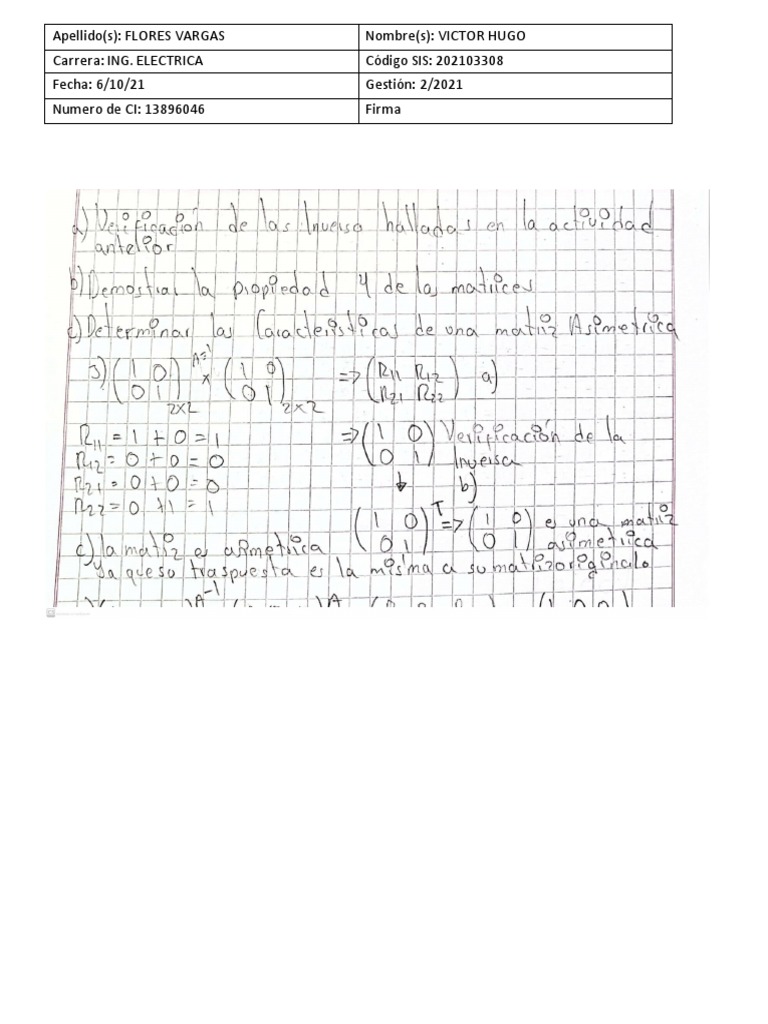 Apellido(s): FLORES VARGAS Nombre(s): VICTOR HUGO
Carrera: ING. ELECTRICA Código SIS: 202103308
Fecha: 6/10/21 Gestión: 2/2021
Numero de CI: 13896046 Firma
a) Verificación de las Inversa halladas en la actividad
anterior
b) Demostrar la propiedad 4 de las matrices
c) Determinar las Características de una matriz Asimetrica
(1 0) A⁻¹ (1 0) => (R11 R12) a)
(0 1)2x2 x (0 1)2x2 (R21 R22)
R11 = 1 + 0 = 1 => (1 0) Verificación de la
R12 = 0 + 0 = 0 (0 1) Inversa
R21 = 0 + 0 = 0 ↓ b)
R22 = 0 + 1 = 1 (1 0)T => (1 0) e una matriz
c) la matiz es asimetrica (0 1) (0 1) asimetrica
ya que su traspuesta es la misma a su matriz original
A⁻¹ A